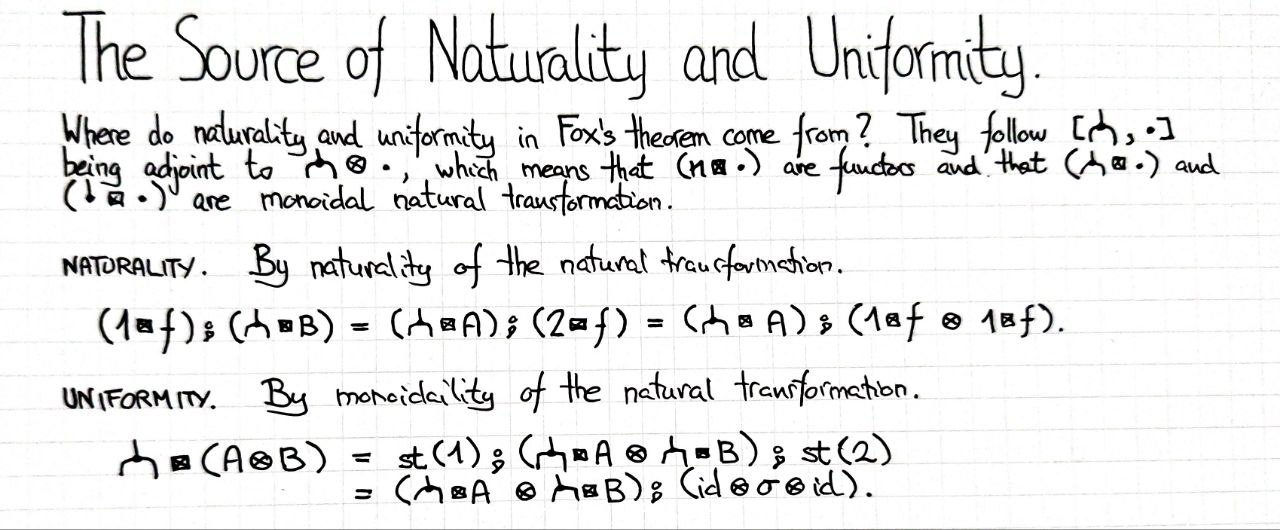 The Source of Naturality and Uniformity.
Where do naturality and uniformity in Fox's theorem come from? They follow [⑃, •]
being adjoint to ⑃ ⊗ •, which means that (n ⊠ •) are functors and that (⑃ ⊠ •) and
(⫰ ⊠ •) are monoidal natural transformation.
NATURALITY. By naturality of the natural transformation.
(1⊠f) ⨾ (⑃⊠B) = (⑃⊠A) ⨾ (2⊠f) = (⑃⊠A) ⨾ (1⊠f ⊗ 1⊠f).
UNIFORMITY. By monoidality of the natural transformation.
⑃ ⊠ (A⊗B) = st(1) ⨾ (⑃⊠A ⊗ ⑃⊠B) ⨾ st(2)
= (⑃⊠A ⊗ ⑃⊠B) ⨾ (id ⊗ σ ⊗ id).